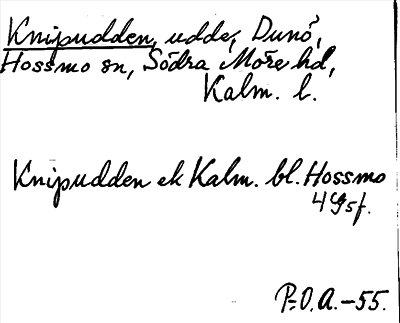 Knipudden, udde, Dunö,
Hossmo sn, Södra Möre hd,
Kalm. l.
Knipudden ek Kalm. bl. Hossmo
4 g 5 f.
P.O.A.-55.